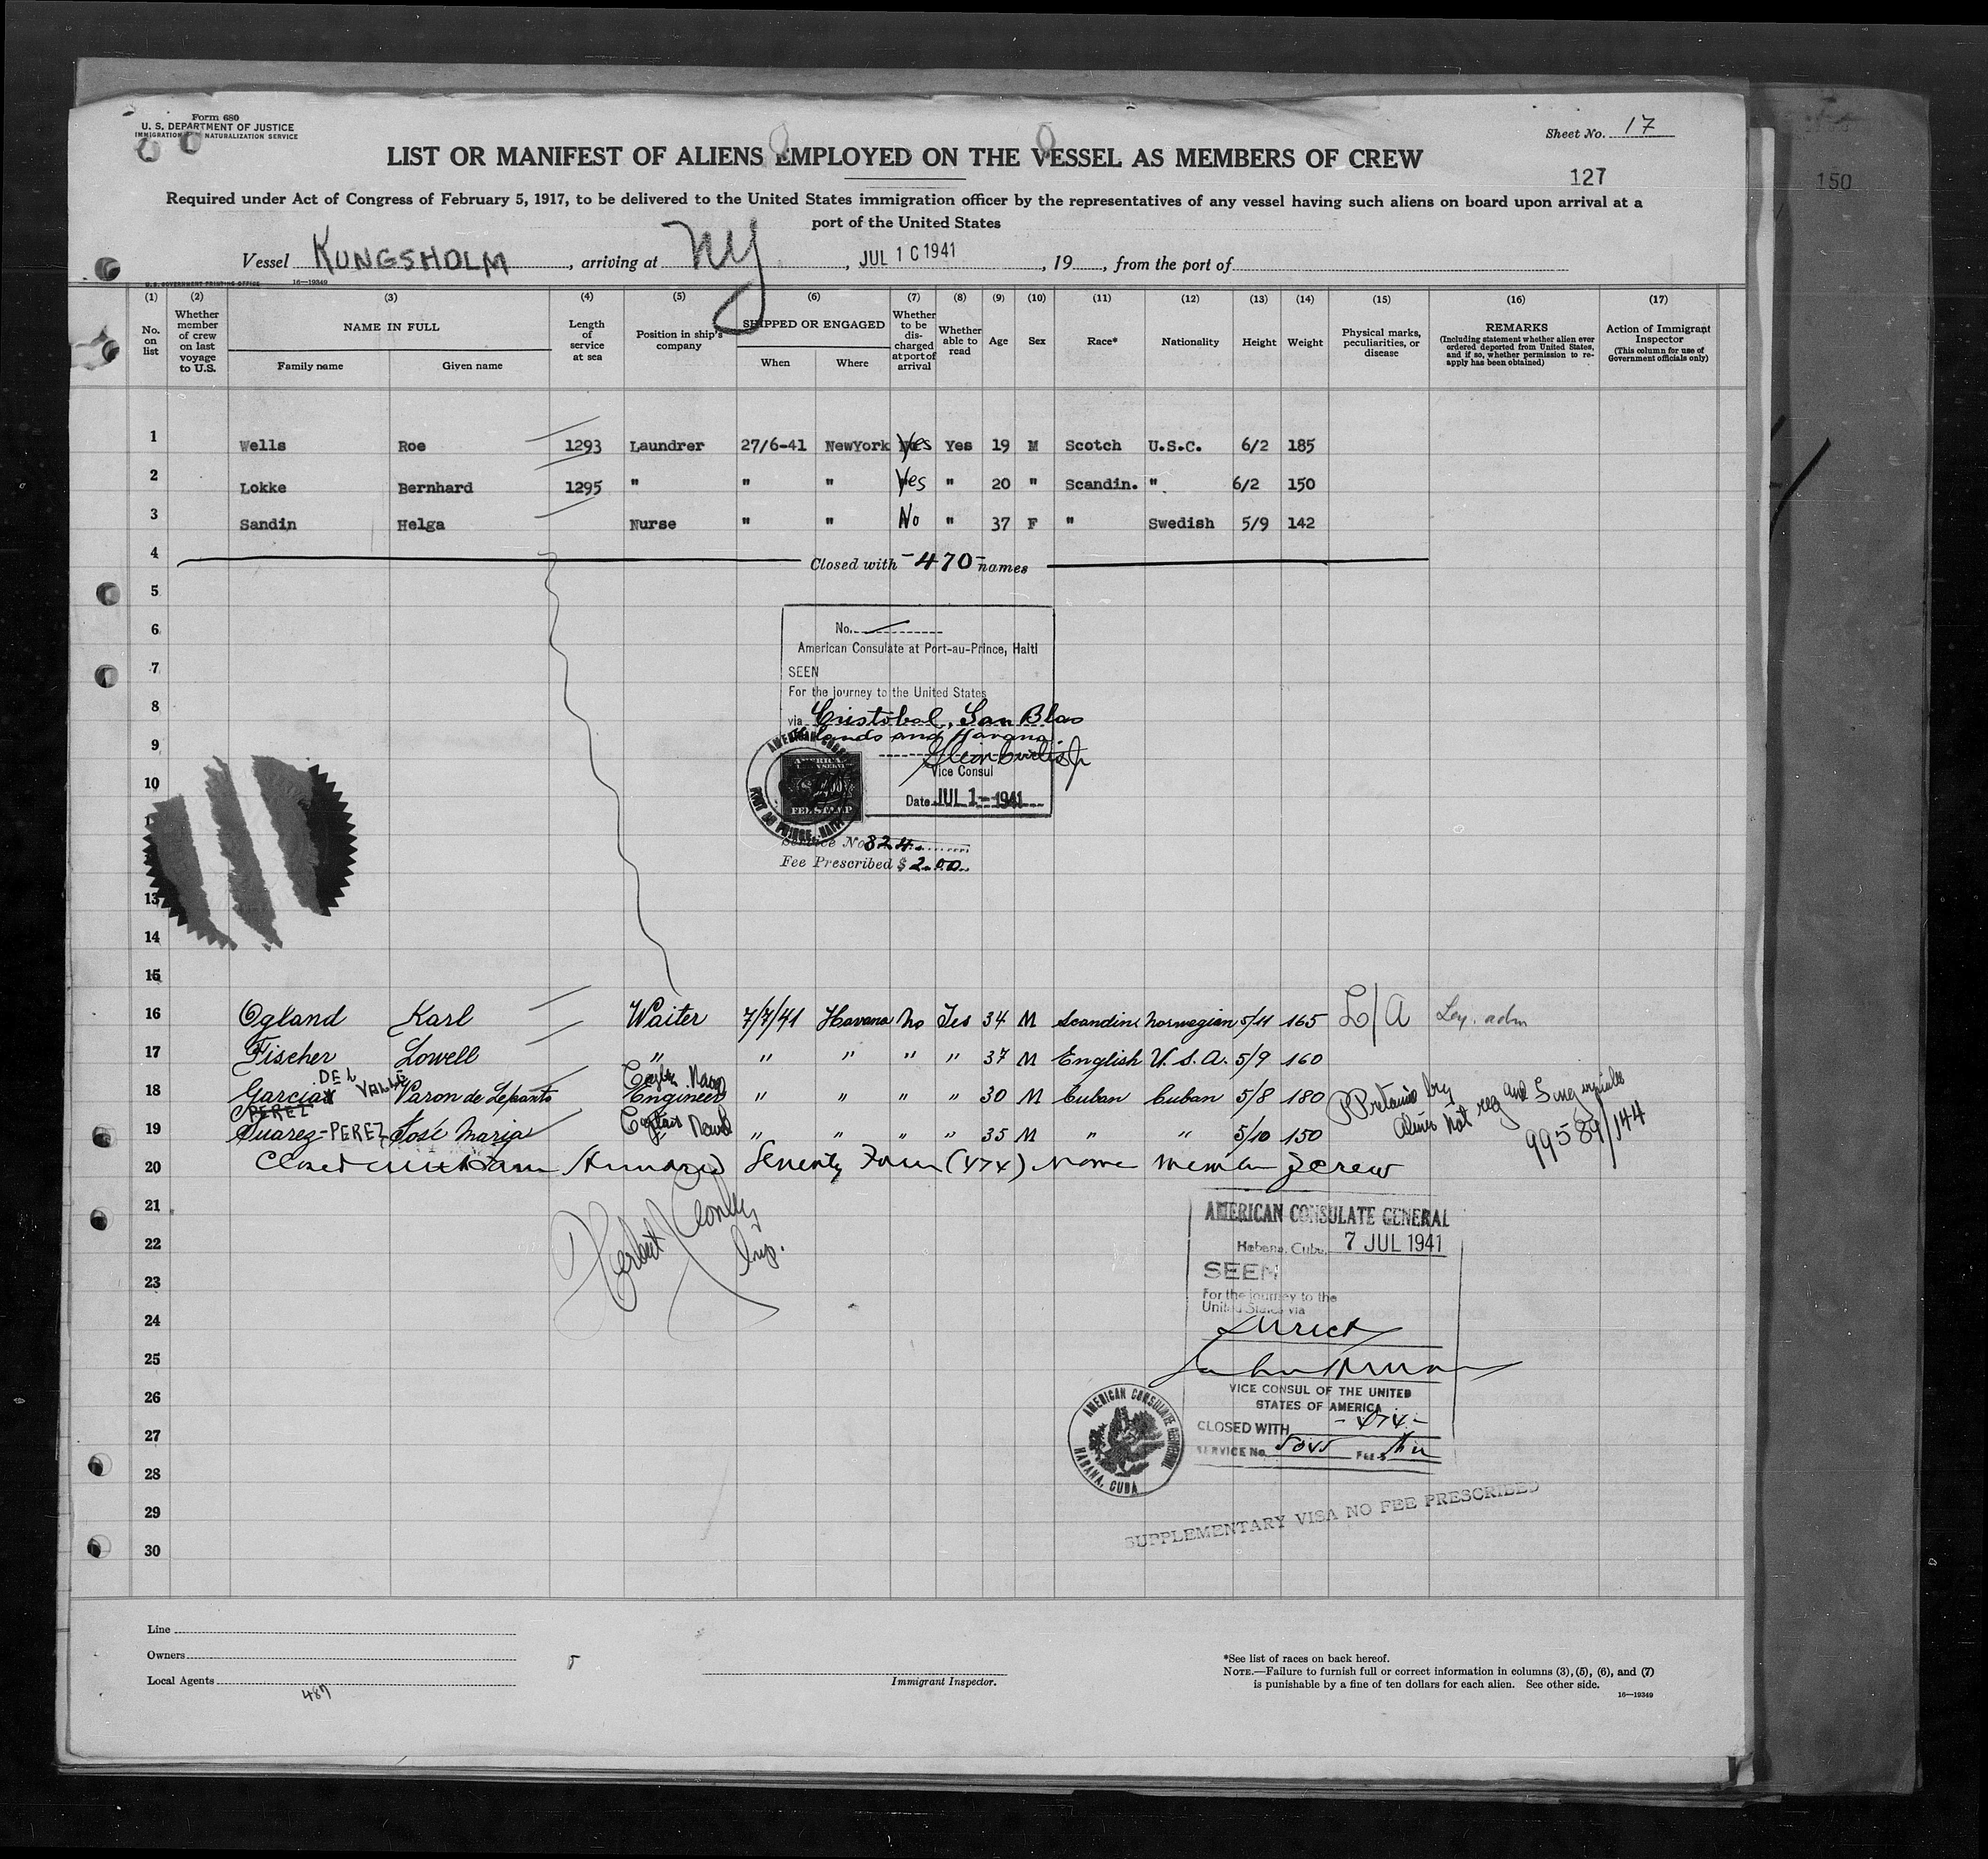 Form 680
U. S. DEPARTMENT OF JUSTICE
IMMIGRATION AND NATURALIZATION SERVICE
Sheet No. 17
LIST OR MANIFEST OF ALIENS EMPLOYED ON THE VESSEL AS MEMBERS OF CREW
127
150
Required under Act of Congress of February 5, 1917, to be delivered to the United States immigration officer by the representatives of any vessel having such aliens on board upon arrival at a
port of the United States
Vessel KUNGSHOLM, arriving at NY, JUL 10 1941, 19, from the port of
U. S. GOVERNMENT PRINTING OFFICE 16—19349
(1) (2) (3) (4) (5) (6) (7) (8) (9) (10) (11) (12) (13) (14) (15) (16) (17)
No. on list
Whether member of crew on last voyage to U.S.
NAME IN FULL
Family name
Given name
Length of service at sea
Position in ship's company
SHIPPED OR ENGAGED
When
Where
Whether to be discharged at port of arrival
Whether able to read
Age
Sex
Race*
Nationality
Height
Weight
Physical marks, peculiarities, or disease
REMARKS
(Including statement whether alien ever ordered deported from United States, and if so, whether permission to reapply has been obtained)
Action of Immigrant Inspector
(This column for use of Government officials only)
1 Wells Roe 1293 Laundrer 27/6-41 NewYork Yes Yes 19 M Scotch U.S.C. 6/2 185
2 Lokke Bernhard 1295 " " " Yes " 20 " Scandin. " 6/2 150
3 Sandin Helga Nurse " " No " 37 F " Swedish 5/9 142
4 Closed with -470- names
5
6
No.
American Consulate at Port-au-Prince, Haiti
7
SEEN
For the journey to the United States
8
via Cristobal, San Blas
Islands and Havana
9
Vice Consul
10
Date JUL 1 - 1941
AMERICAN
FEE STAMP
PORT AU PRINCE, HAITI
Service No. 824
Fee Prescribed $ 2.00
13
14
15
16 Ogland Karl Waiter 7/7/41 Havana No Yes 34 M Scandin Norwegian 5/11 165 L/A
17 Fischer Lowell " " " " " 37 M English U.S.A. 5/9 160
DEL VALLE
18 Garcia Varon de Lepanto Engineer " " " " 30 M Cuban Cuban 5/8 180
PEREZ
19 Suarez-PEREZ José Maria " " " " 35 M " " 5/10 150
99589/144
20 Closed with Four Hundred Seventy Four (474) Name Member of crew
21
Herbert
Insp.
AMERICAN CONSULATE GENERAL
22
Habana, Cuba, 7 JUL 1941
23
SEEN
For the journey to the
United States via
24
Direct
25
VICE CONSUL OF THE UNITED
26
STATES OF AMERICA
CLOSED WITH -474-
27
SERVICE No. Fee $
AMERICAN CONSULATE GENERAL
HABANA, CUBA
28
29
SUPPLEMENTARY VISA NO FEE PRESCRIBED
30
Line
Owners
Local Agents
487
Immigrant Inspector.
*See list of races on back hereof.
NOTE.—Failure to furnish full or correct information in columns (3), (5), (6), and (7)
is punishable by a fine of ten dollars for each alien. See other side.
16—19349